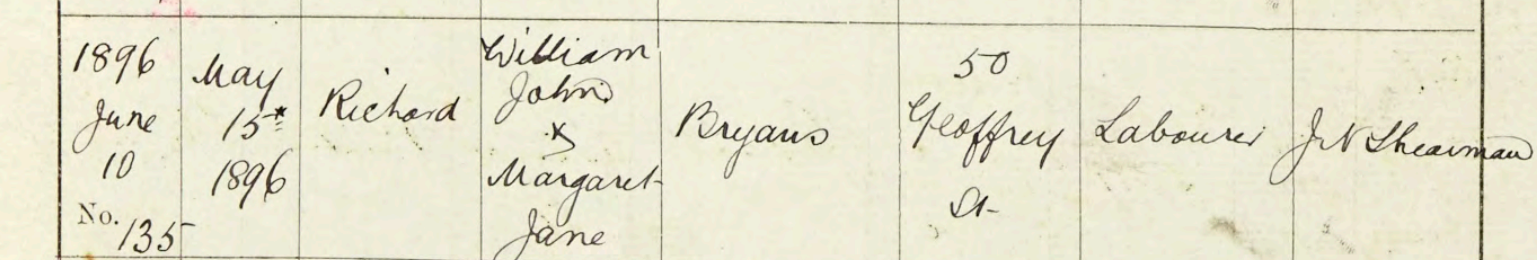 1896
June
10
No. 135
May
15th
1896
Richard
William
John
&
Margaret
Jane
Bryans
50
Geoffrey
St
Labourer
J N Shearman